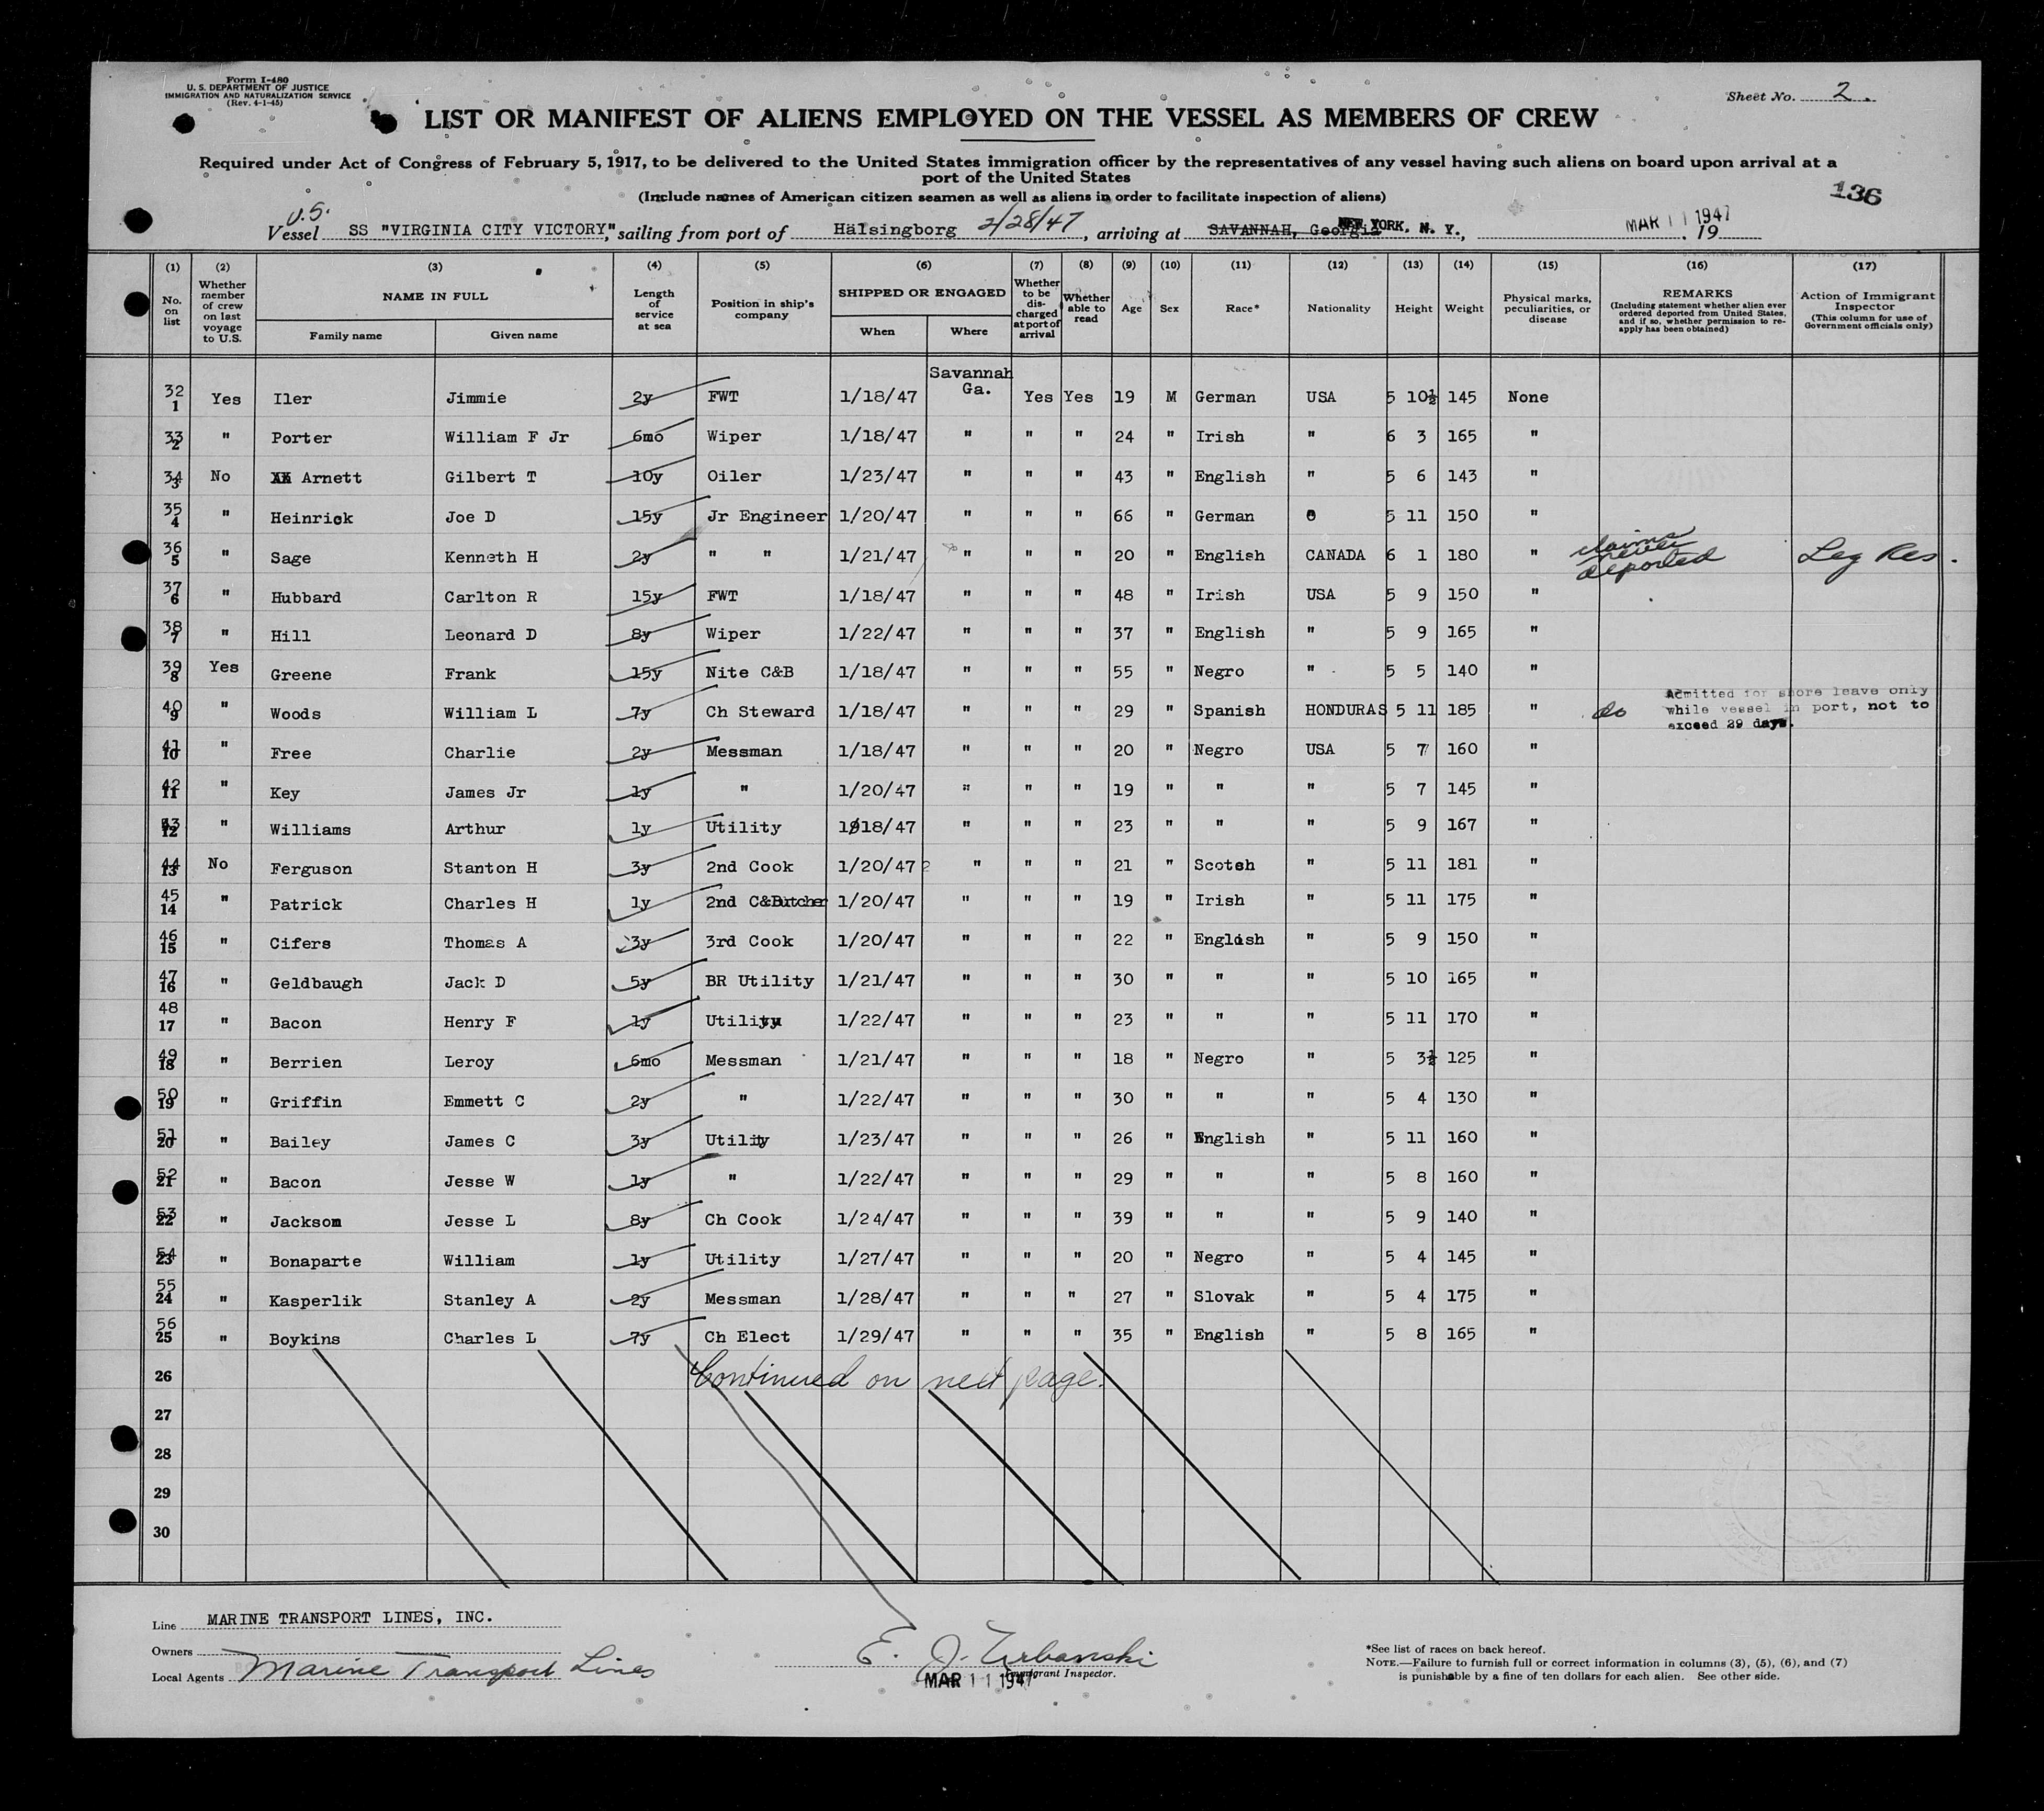 Form I-480
U. S. DEPARTMENT OF JUSTICE
IMMIGRATION AND NATURALIZATION SERVICE
(Rev. 4-1-45)
Sheet No. 2.
LIST OR MANIFEST OF ALIENS EMPLOYED ON THE VESSEL AS MEMBERS OF CREW
Required under Act of Congress of February 5, 1917, to be delivered to the United States immigration officer by the representatives of any vessel having such aliens on board upon arrival at a
port of the United States
(Include names of American citizen seamen as well as aliens in order to facilitate inspection of aliens)
136
U.S.
Vessel SS "VIRGINIA CITY VICTORY", sailing from port of Hälsingborg 2/28/47, arriving at SAVANNAH, Georgia NEW YORK, N. Y., MAR 11 1947 19
(1) (2) (3) (4) (5) (6) (7) (8) (9) (10) (11) (12) (13) (14) (15) (16) (17)
No. on list | Whether member of crew on last voyage to U.S. | NAME IN FULL | Family name | Given name | Length of service at sea | Position in ship's company | SHIPPED OR ENGAGED | When | Where | Whether to be discharged at port of arrival | Whether able to read | Age | Sex | Race* | Nationality | Height | Weight | Physical marks, peculiarities, or disease | REMARKS (Including statement whether alien ever ordered deported from United States, and if so, whether permission to reapply has been obtained) | Action of Immigrant Inspector (This column for use of Government officials only)
32 1 Yes Iler Jimmie 2y FWT 1/18/47 Savannah Ga. Yes Yes 19 M German USA 5 10½ 145 None
33 2 " Porter William F Jr 6mo Wiper 1/18/47 " " " 24 " Irish " 6 3 165 "
34 3 No Arnett Gilbert T 10y Oiler 1/23/47 " " " 43 " English " 5 6 143 "
35 4 " Heinrick Joe D 15y Jr Engineer 1/20/47 " " " 66 " German " 5 11 150 "
36 5 " Sage Kenneth H 2y " " 1/21/47 " " " 20 " English CANADA 6 1 180 " claims never deported Leg Res.
37 6 " Hubbard Carlton R 15y FWT 1/18/47 " " " 48 " Irish USA 5 9 150 "
38 7 " Hill Leonard D 8y Wiper 1/22/47 " " " 37 " English " 5 9 165 "
39 8 Yes Greene Frank 15y Nite C&B 1/18/47 " " " 55 " Negro " 5 5 140 "
40 9 " Woods William L 7y Ch Steward 1/18/47 " " " 29 " Spanish HONDURAS 5 11 185 " do Admitted for shore leave only while vessel in port, not to exceed 29 days.
41 10 " Free Charlie 2y Messman 1/18/47 " " " 20 " Negro USA 5 7 160 "
42 11 " Key James Jr 1y " 1/20/47 " " " 19 " " " 5 7 145 "
43 12 " Williams Arthur 1y Utility 1/18/47 " " " 23 " " " 5 9 167 "
44 13 No Ferguson Stanton H 3y 2nd Cook 1/20/47 " " " 21 " Scotch " 5 11 181 "
45 14 " Patrick Charles H 1y 2nd C&Butcher 1/20/47 " " " 19 " Irish " 5 11 175 "
46 15 " Cifers Thomas A 3y 3rd Cook 1/20/47 " " " 22 " English " 5 9 150 "
47 16 " Geldbaugh Jack D 5y BR Utility 1/21/47 " " " 30 " " " 5 10 165 "
48 17 " Bacon Henry F 1y Utility 1/22/47 " " " 23 " " " 5 11 170 "
49 18 " Berrien Leroy 6mo Messman 1/21/47 " " " 18 " Negro " 5 3½ 125 "
50 19 " Griffin Emmett C 2y " 1/22/47 " " " 30 " " " 5 4 130 "
51 20 " Bailey James C 3y Utility 1/23/47 " " " 26 " English " 5 11 160 "
52 21 " Bacon Jesse W 1y " 1/22/47 " " " 29 " " " 5 8 160 "
53 22 " Jackson Jesse L 8y Ch Cook 1/24/47 " " " 39 " " " 5 9 140 "
54 23 " Bonaparte William 1y Utility 1/27/47 " " " 20 " Negro " 5 4 145 "
55 24 " Kasperlik Stanley A 2y Messman 1/28/47 " " " 27 " Slovak " 5 4 175 "
56 25 " Boykins Charles L 7y Ch Elect 1/29/47 " " " 35 " English " 5 8 165 "
26 Continued on next page.
27
28
29
30
Line MARINE TRANSPORT LINES, INC.
Owners
Local Agents Marine Transport Lines
E. J. Urbanski
Immigrant Inspector.
MAR 11 1947
*See list of races on back hereof.
NOTE.—Failure to furnish full or correct information in columns (3), (5), (6), and (7)
is punishable by a fine of ten dollars for each alien. See other side.